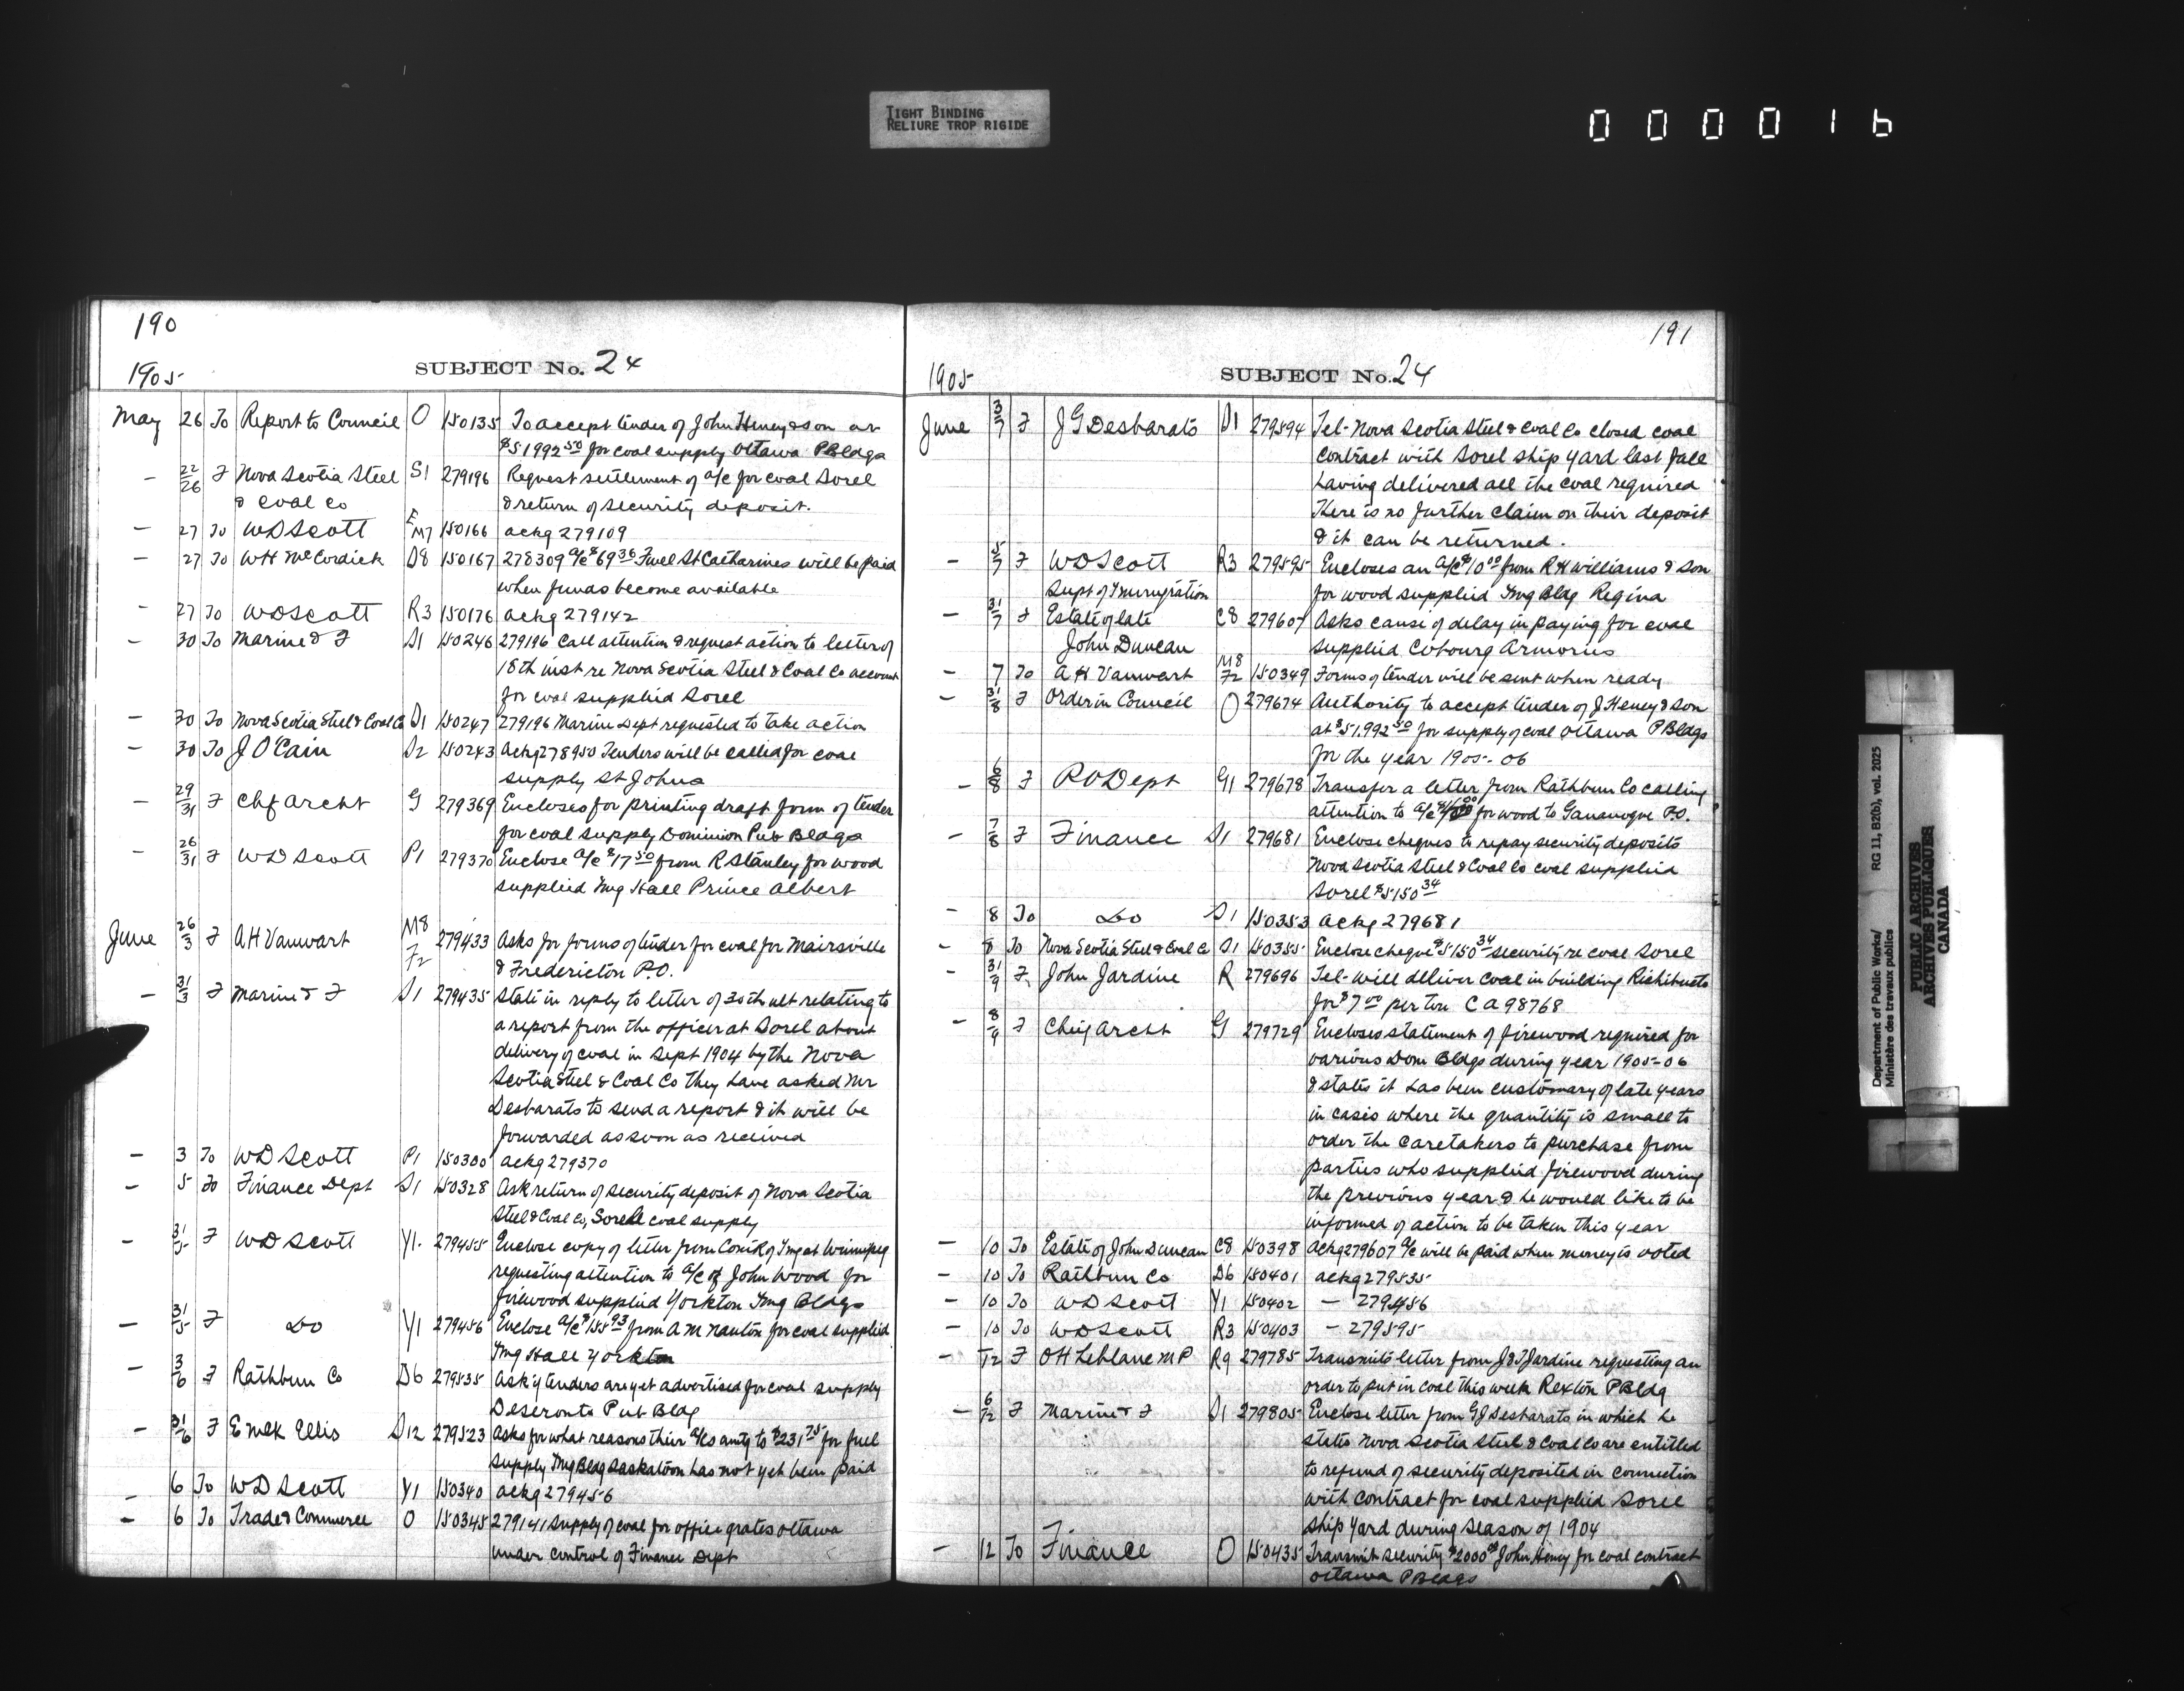 TIGHT BINDING
RELIURE TROP RIGIDE
0 0 0 0 1 6
190
1905 SUBJECT No. 24
May 26 To Report to Council O 150135 To accept tender of John Heney & son at
$51992 50 for coal supply Ottawa PBldgs
— 22/26 F Nova Scotia Steel S1 279196 Request settlement of a/c for coal Sorel
& Coal Co & return of security deposit.
— 27 To WD Scott M7 150166 ackg 279109
— 27 To WH McCordick D8 150167 278309 a/c $69 36 Fuel St Catharines will be paid
when funds become available
- 27 To WD Scott R3 150176 ackg 279142
- 30 To Marine & F S1 150246 279196 Call attention & request action to letter of
18th inst re Nova Scotia Steel & Coal Co account
for coal supplied Sorel
— 30 To Nova Scotia Steel & Coal Co S1 150247 279196 Marine Dept requested to take action
— 30 To J O'Cain S2 150243 Ackg 278950 Tenders will be called for coal
supply St Johns
— 29/31 F Chf Archt G 279369 Encloses for printing draft form of tender
for coal supply Dominion Pub Bldgs
- 26/31 F WD Scott P1 279370 Enclose a/c $17 50 from R Stanley for wood
supplied Img Hall Prince Albert
June 26/3 F AH Vanwart M8 F2 279433 Asks for forms of tender for coal for Mairsville
& Fredericton P.O.
— 31/3 F Marine & F S1 279435 State in reply to letter of 30th ult relating to
a report from the officer at Sorel about
delivery of coal in Sept 1904 by the Nova
Scotia Steel & Coal Co they have asked Mr
Desbarats to send a report & it will be
forwarded as soon as received
— 3 To WD Scott P1 150300 ackg 279370
— 5 To Finance Dept S1 150328 Ask return of security deposit of Nova Scotia
Steel & Coal Co, Sorel coal supply
— 31/5 F WD Scott Y1 279455 Enclose copy of letter from Comr of Img at Winnipeg
requesting attention to a/c of John Wood for
firewood supplied Yorkton Img Bldgs
— 31/5 F Do Y1 279456 Enclose a/c $155 93 from AM Nanton for coal supplied
Img Hall Yorkton
— 3/6 F Rathbun Co D6 279535 Ask if tenders are yet advertised for coal supply
Deseronto Pub Bldg
— 31/6 F E McK Ellis S12 279523 Asks for what reasons their a/cs amtg to $231 75 for fuel
supply Img Bldg Saskatoon has not yet been paid
— 6 To WD Scott Y1 150340 ackg 279456
— 6 To Trade & Commerce O 150345 279141 Supply of coal for office grates Ottawa
under control of Finance Dept
191
1905 SUBJECT No. 24
June 3/7 F J G Desbarats S1 279594 Tel- Nova Scotia Steel & Coal Co closed coal
contract with Sorel ship yard last fall
having delivered all the coal required
There is no further claim on their deposit
& it can be returned.
— 5/7 F WD Scott R3 279595 Encloses an a/c $10 00 from RH Williams & Son
Supt of Immigration for wood supplied Img Bldg Regina
— 31/7 F Estate of late C8 279607 Asks cause of delay in paying for coal
John Duncan supplied Cobourg Armories
— 7 To A H Vanwart M8 F2 150349 Forms of tender will be sent when ready
— 31/8 F Order in Council O 279674 Authority to accept tender of J Heney & Son
at $51.992 50 for supply of coal Ottawa PBldgs
for the year 1905-06
— 6/8 F PO Dept G1 279678 Transfer a letter from Rathbun Co calling
attention to a/c for wood to Gananoque P.O.
— 7/8 F Finance S1 279681 Enclose cheques to repay security deposits
Nova Scotia Steel & Coal Co coal supplied
Sorel $5150 34
— 8 To Do S1 150353 ackg 279681
— 8 To Nova Scotia Steel & Coal Co S1 150355 Enclose cheque $5150 34 security re coal Sorel
— 31/9 F John Jardine R 279696 Tel- will deliver coal in building Richibucto
for $7 00 per ton CA98768
— 8/9 F Chief Archt G 279729 Encloses statement of firewood required for
various Dom Bldgs during year 1905-06
& states it has been customary of late years
in cases where the quantity is small to
order the caretakers to purchase from
parties who supplied firewood during
the previous year & he would like to be
informed of action to be taken this year
— 10 To Estate of John Duncan C8 150398 Ackg 279607 a/c will be paid when money is voted
— 10 To Rathbun Co D6 150401 ackg 279535
— 10 To WD Scott Y1 150402 — 279456
— 10 To WD Scott R3 150403 — 279595
— 12 F OH Leblanc MP R9 279785 Transmits letter from J&T Jardine requesting an
order to put in coal this week Rexton PBldg
— 6/12 F Marine & F S1 279805 Enclose letter from GJ Desbarats in which he
states Nova Scotia Steel & Coal Co are entitled
to refund of security deposited in connection
with contract for coal supplied Sorel
ship yard during season of 1904
— 12 To Finance O 150435 Transmit security $2000 00 John Heney for coal contract
Ottawa PBldgs
Department of Public Works/ RG 11, B2(b), vol. 2025
Ministère des travaux publics
PUBLIC ARCHIVES
ARCHIVES PUBLIQUES
CANADA